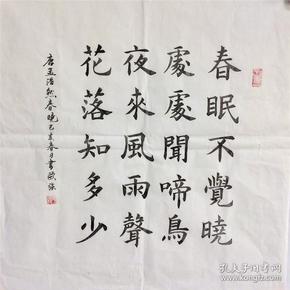 春眠不覺曉
處處聞啼鳥
夜來風雨聲
花落知多少
唐孟浩然春曉己亥春月書
孔夫子旧书网